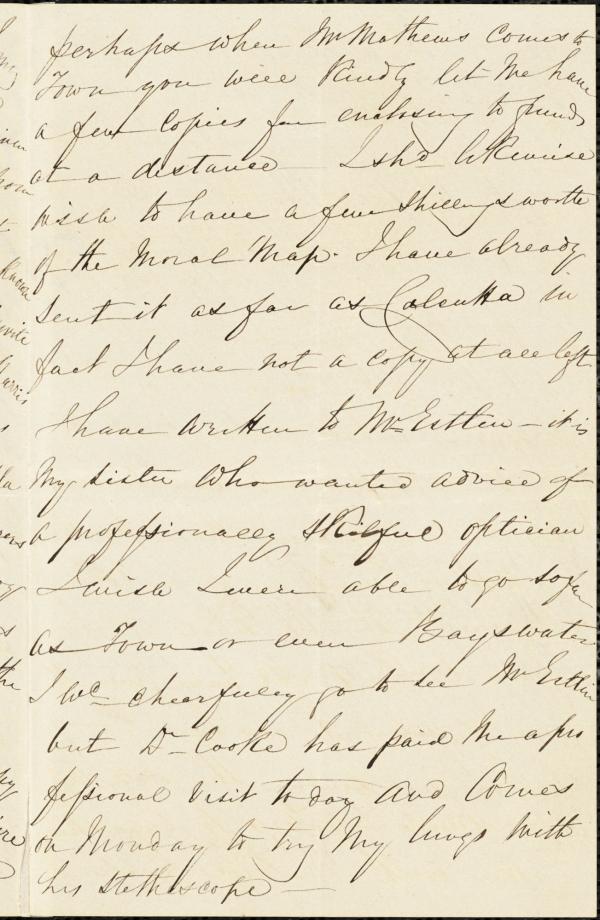 perhaps when Mr Mathews comes to
Town you will kindly let me have
a few copies for enclosing to friends
at a distance I shd likewise
wish to have a few shillings worth
of the Moral Map. I have already
sent it as far as Calcutta in
fact I have not a copy at all left
I have written to Mr Estlin - it is
my sister who wanted advice of
a professionally skilful optician
I wish I were able to go so far
as Town or even Bayswater
I wd cheerfully go to see Mr Estlin
but Dr Cooke has paid me a pro
fessional visit today and comes
on Monday to try my lungs with
his stethescope -